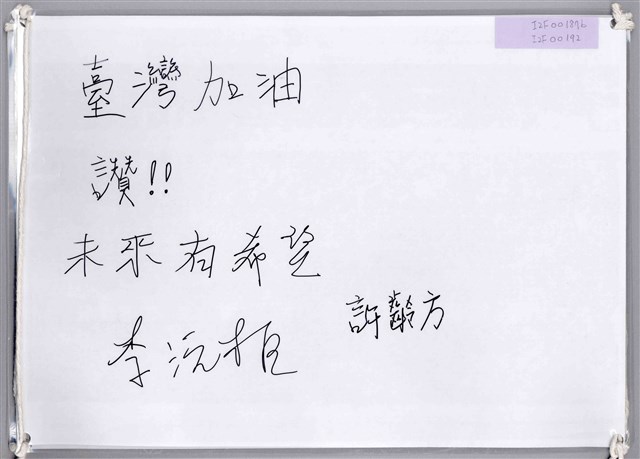 I2F001876
I2F00192
臺灣加油
讚!!
未來有希望
許齡方
李沅桓